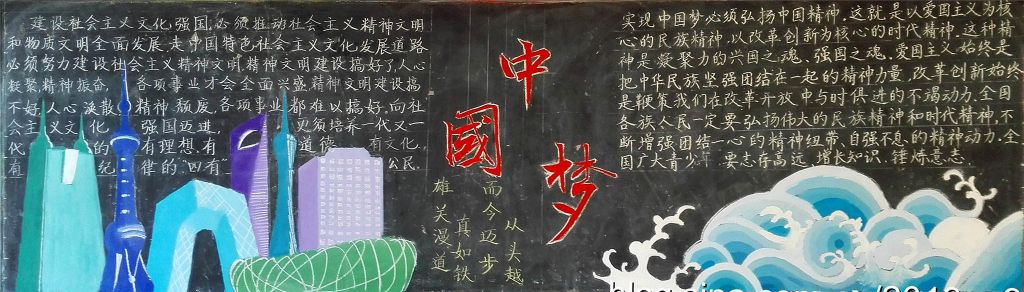 建设社会主义文化强国,必须推动社会主义精神文明
和物质文明全面发展,走中国特色社会主义文化发展道路
必须努力建设社会主义精神文明,精神文明建设搞好了,人心
凝聚,精神振奋,各项事业才会全面兴盛,精神文明建设搞
不好,人心涣散,精神颓废,各项事业都难以搞好。向社
会主义文化 强国迈进, 必须培养一代又一
代 的 有理想,有 道德 有文化,
有 纪 律的"四有" 公民
中國梦
雄关漫道
真如铁
而今迈步
从头越
实现中国梦必须弘扬中国精神,这就是以爱国主义为核
心的民族精神,以改革创新为核心的时代精神,这种精
神是凝聚力的兴国之魂、强国之魂。爱国主义始终是
把中华民族坚强团结在一起的精神力量,改革创新始终
是鞭策我们在改革开放中与时俱进的不竭动力。全国
各族人民一定要弘扬伟大的民族精神和时代精神,不
断增强团结一心的精神纽带、自强不息的精神动力,全
国广大青少年要志存高远,增长知识,锤炼意志